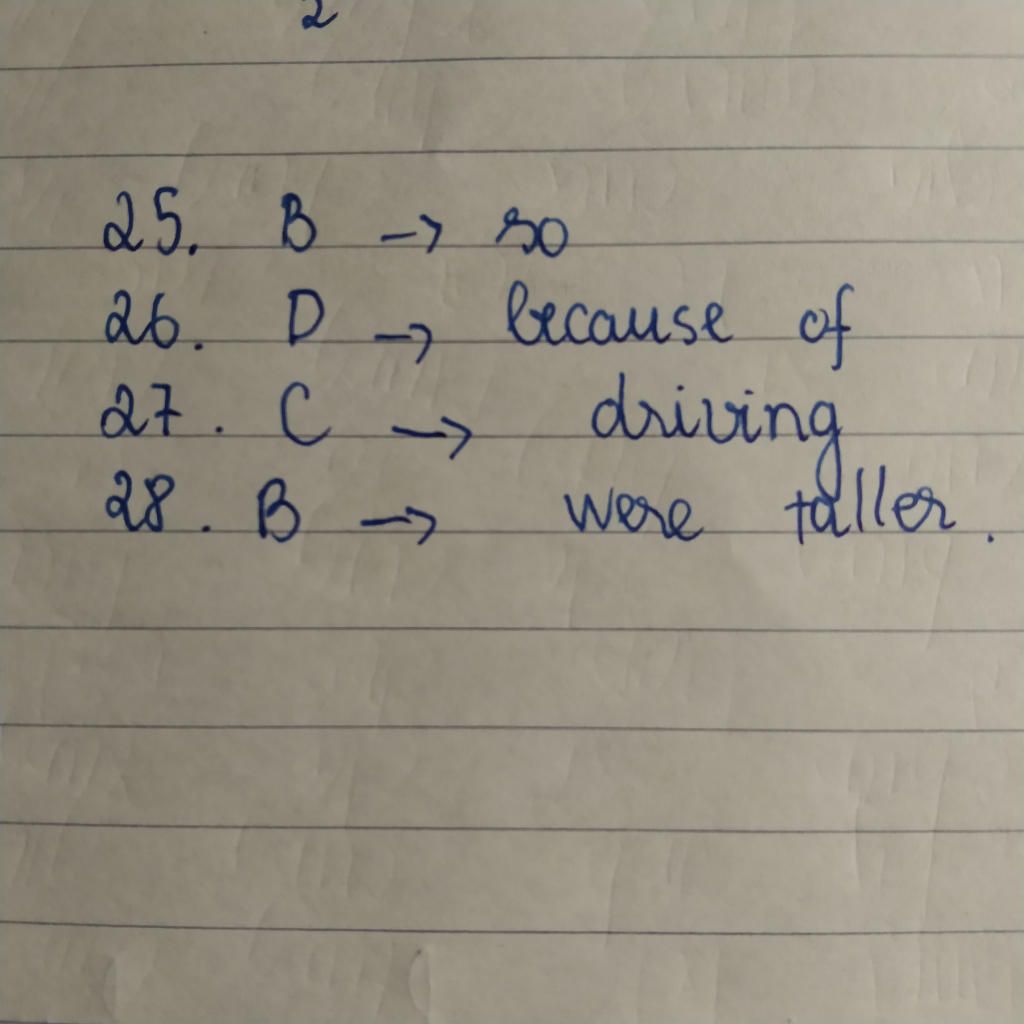 2
25. B → so
26. D → because of
27. C → driving
28. B → were taller.